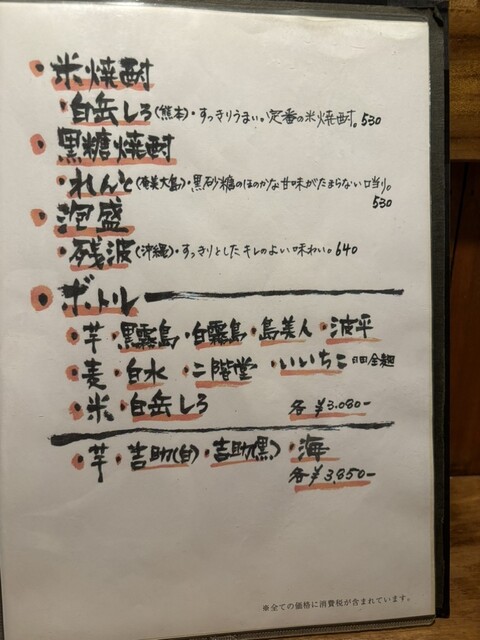 ・米焼酎
・白岳しろ(熊本)・すっきりうまい。定番の米焼酎。530
・黒糖焼酎
・れんと(奄美大島)・黒砂糖のほのかな甘味がたまらない口当り。
530
・泡盛
・残波(沖縄)・すっきりとしたキレのよい味わい。640
・ボトル
・芋・黒霧島・白霧島・島美人・波平
・麦・白水・二階堂・いいちこ
・米・白岳しろ 各¥3.080-
・芋・吉助(白)・吉助(黒)・海
各¥3,850-
※全ての価格に消費税が含まれています。